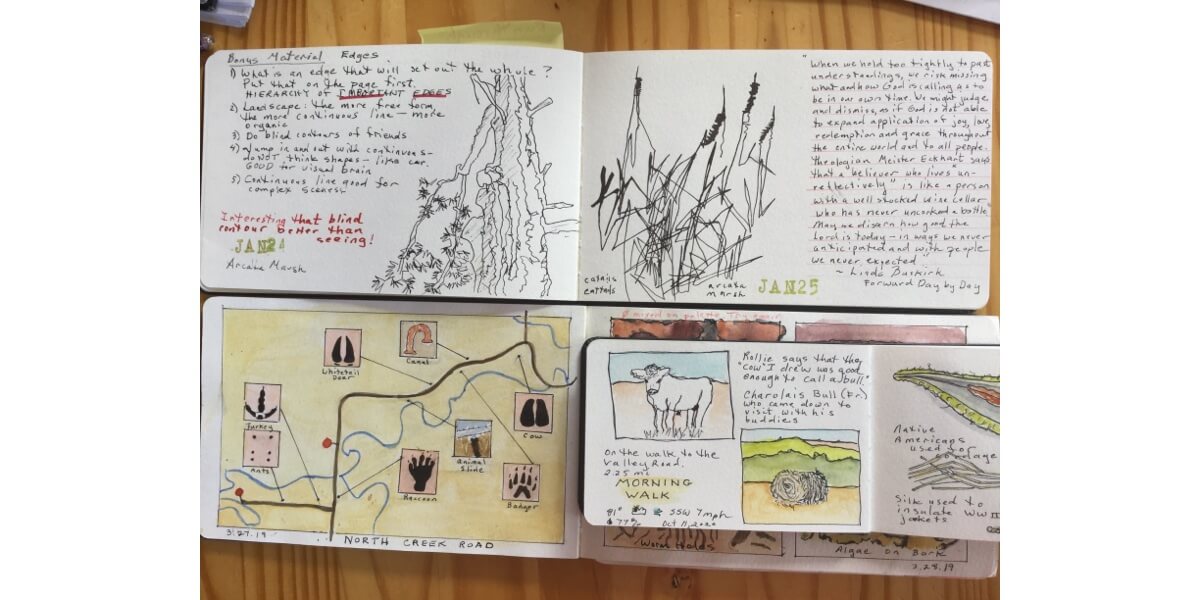 Bonus Material Edges
1) What is an edge that will set out the whole?
Put that on the page first.
HIERARCHY OF IMPORTANT EDGES
2) Landscape: the more free form,
the more continuous line — more
organic
3) Do blind contours of friends
4) Jump in and out with continuous —
do NOT think shapes — like car.
GOOD for visual brain
5) Continuous line good for
complex scenes.
Interesting that blind
contour better than
seeing!
JAN24
Arcata Marsh
cattails
cattails
arcata
marsh
JAN25
"When we hold too tightly to past
understandings, we risk missing
what and how God is calling us to
be in our own time. We might judge
and dismiss, as if God is not able
to expand application of joy, love,
redemption and grace throughout
the entire world and to all people.
Theologian Meister Eckhart says
that a believer who lives "un-
reflectively" is like a person
with a well stocked wine cellar
who has never uncorked a bottle.
May we discern how good the
Lord is today — in ways we never
anticipated and with people
we never expected."
~ Linda Buskirk
Forward Day by Day
Whitetail
Deer
Canal
Turkey
Ants
Cow
Animal
Slide
Raccoon
Badger
3.27.19
NORTH CREEK ROAD
mixed on palette. Try again
Rollie says that the
"Cow" I drew was good
enough to call a bull."
Charolais Bull (Fr.)
who came down to
visit with his
buddies
on the walk to the
Valley Road.
2.25 mi
MORNING
WALK
81°
77%
SSW 7mph
Oct 11, 2020
Native
Americans
used for
cordage
Silk used to
insulate WW II
jackets
Worm Holes
Algae on Bark
3.28.19